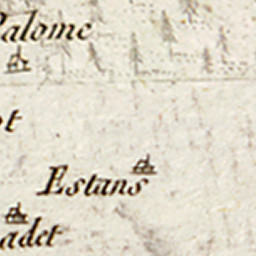 Palome
ot
Estans
adet